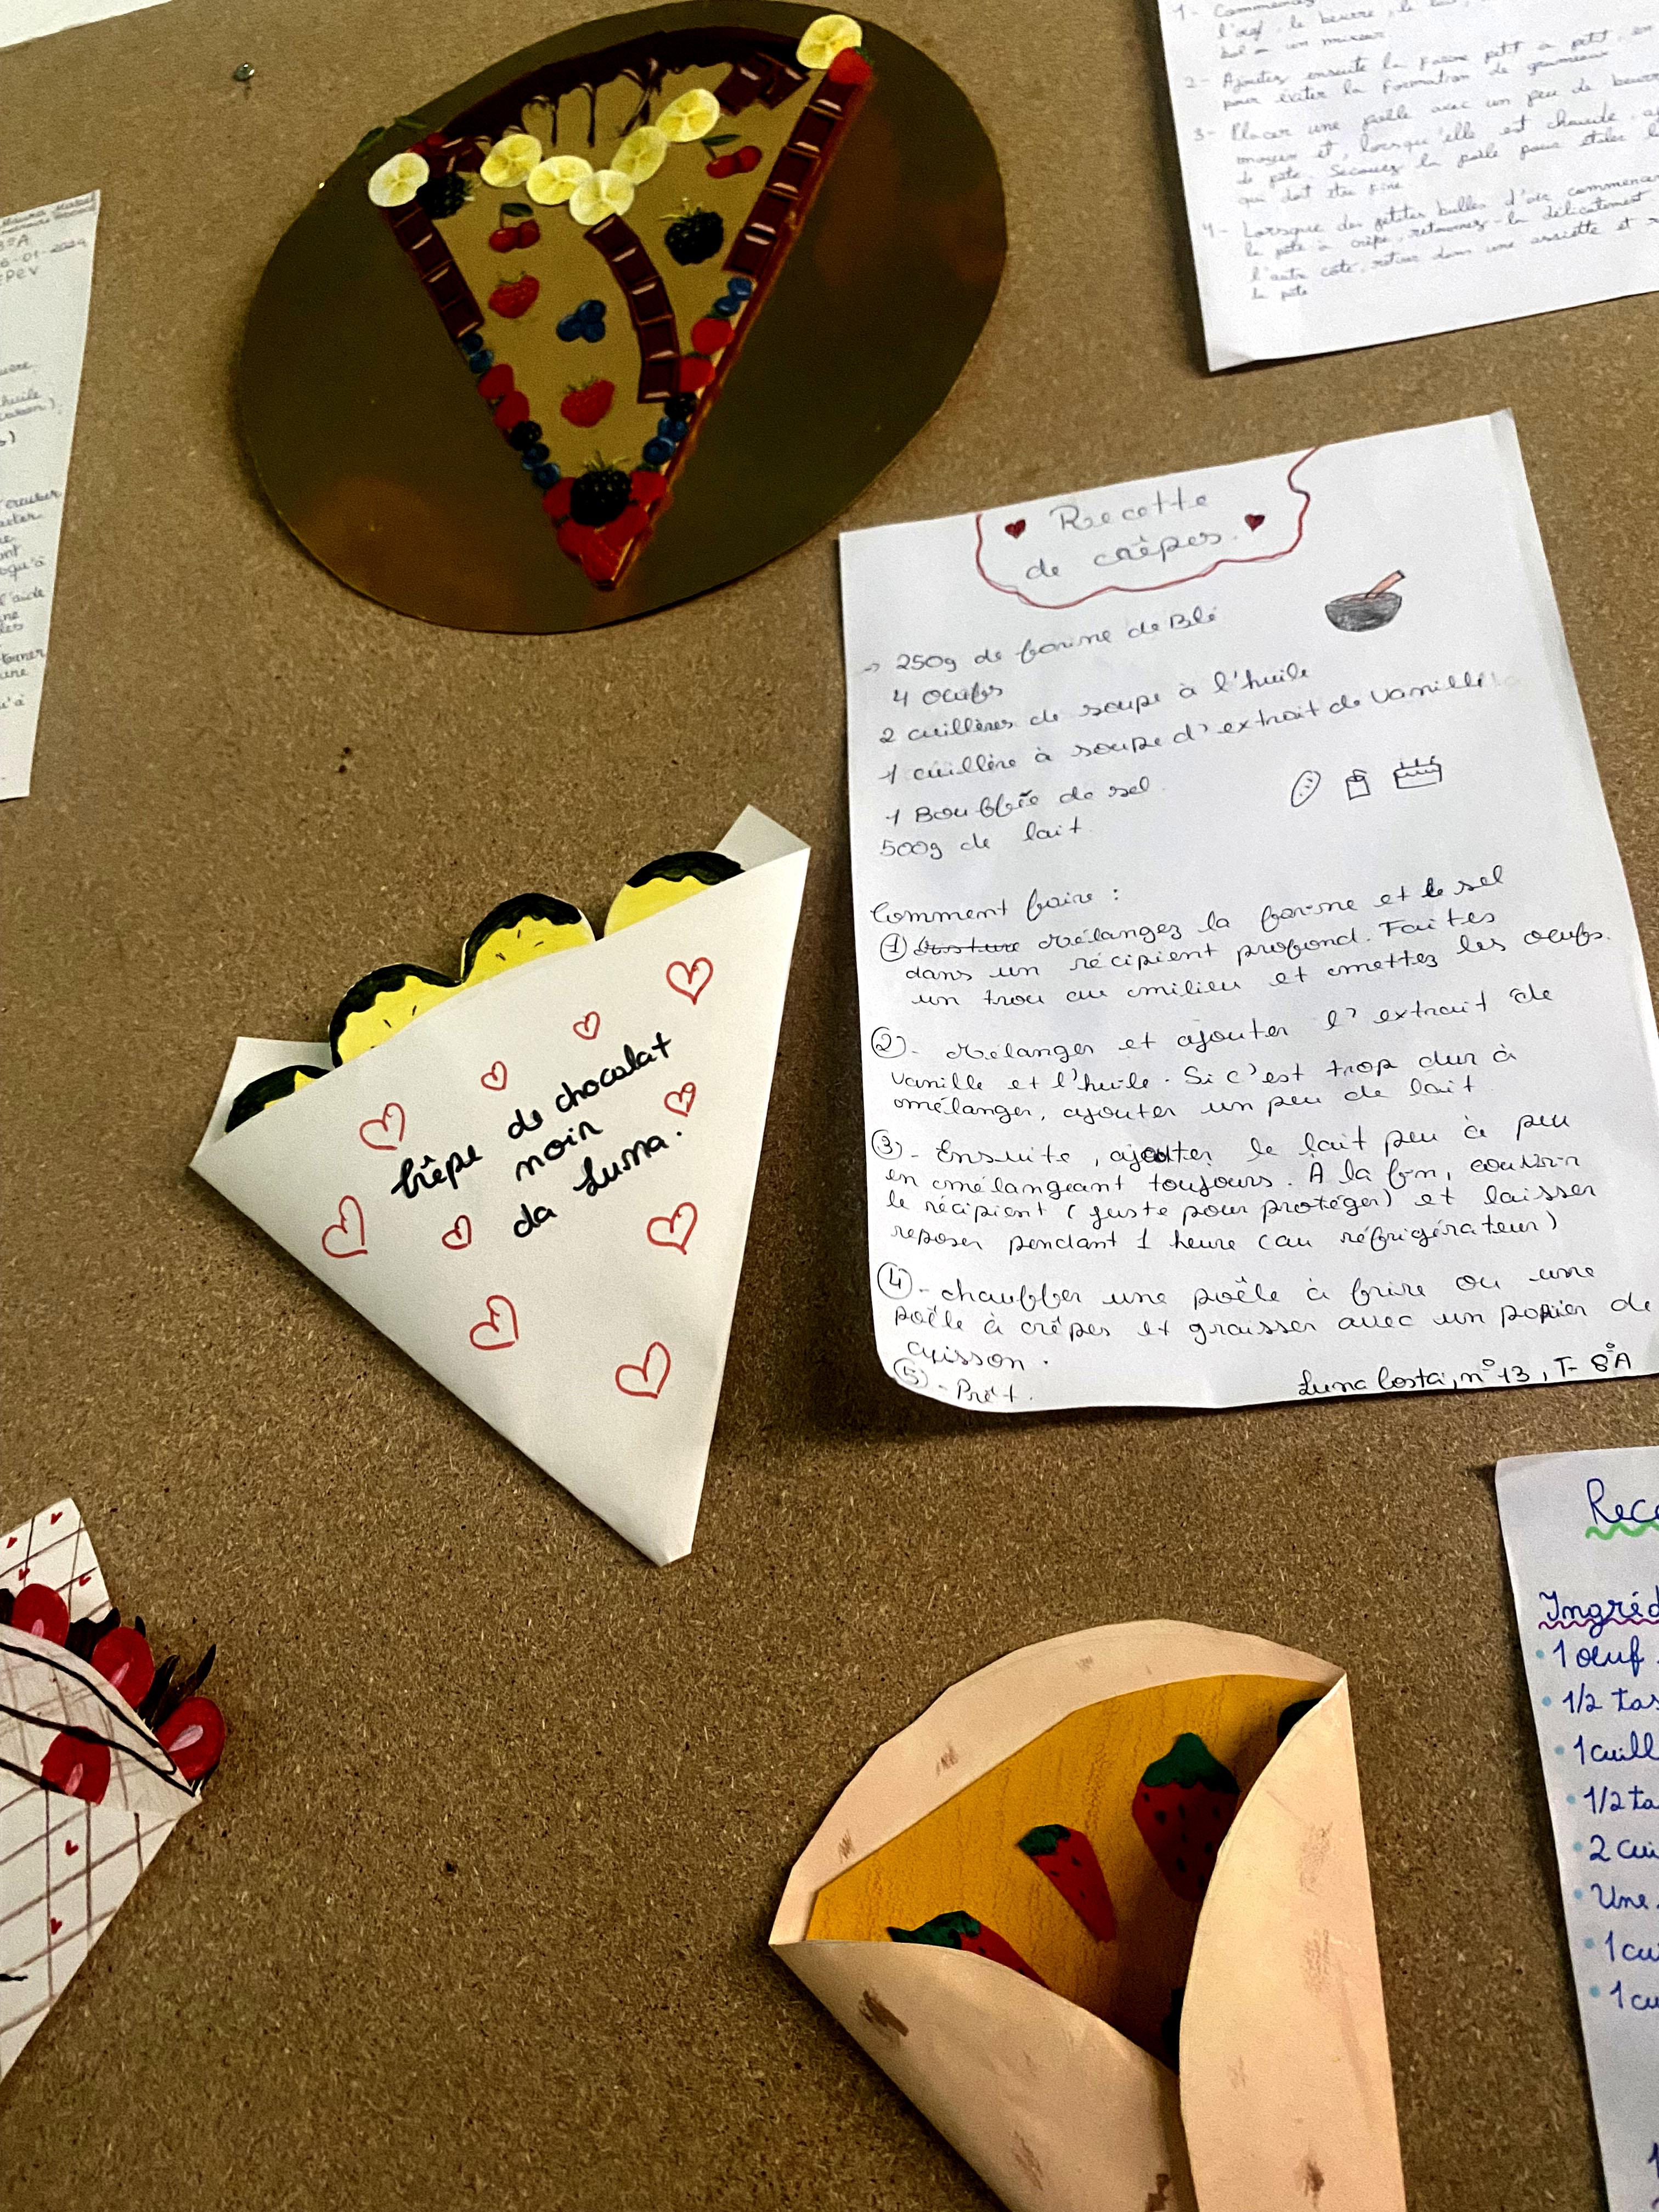 3ºA
6-01-2024
EPEV
1- Commencez
l'œuf, le beurre, le
bol un mixeur
2- Ajoutez ensuite la farine petit à petit, en
pour éviter la formation de grumeaux
3- Placer une poêle avec un peu de beurre
moyen et, lorsqu'elle est chaude,
de pâte. Secouez la poêle pour étaler
qui doit être fine
4- Lorsque des petites bulles d'air commencen
la pâte à crêpe, retournez-la délicatement
l'autre côté, retirez dans une assiette et
la pâte
Recette
de crêpes.
-> 250g de farine de Blé
4 oeufs
2 cuillères de soupe à l'huile
1 cuillère à soupe d'extrait de vanille
1 Bouffée de sel.
500g de lait.
Comment faire :
① Mélangez la farine et le sel
dans un récipient profond. Faites
un trou au milieu et mettez les oeufs.
②- Mélanger et ajouter l'extrait de
vanille et l'huile. Si c'est trop dur à
mélanger, ajouter un peu de lait
③- Ensuite, ajouter le lait peu à peu
en mélangeant toujours. A la fin, couvrir
le récipient (juste pour protéger) et laisser
reposer pendant 1 heure (au réfrigérateur)
④- chauffer une poêle à frire ou une
poêle à crêpes et graisser avec un papier de
cuisson.
⑤- Prêt.
Luna Costa, nº 13, T- 8ºA
Crêpe de chocolat
noir
da Luna.
Rece
Ingréd
• 1 œuf
• 1/2 tas
• 1 cuill
• 1/2 ta
• 2 cui
• Une
• 1 cu
• 1 cu